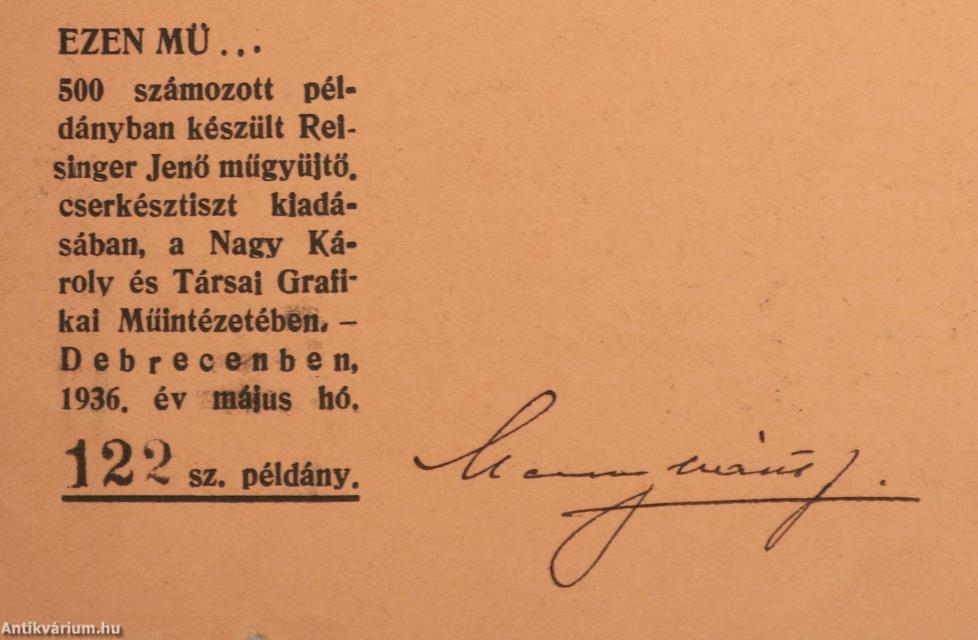 EZEN MŰ...
500 számozott pél-
dányban készült Rei-
singer Jenő műgyüjtő,
cserkésztiszt kiadá-
sában, a Nagy Ká-
roly és Társai Grafi-
kai Műintézetében, –
Debrecenben,
1936. év május hó.
122 sz. példány.
Antikvárium.hu